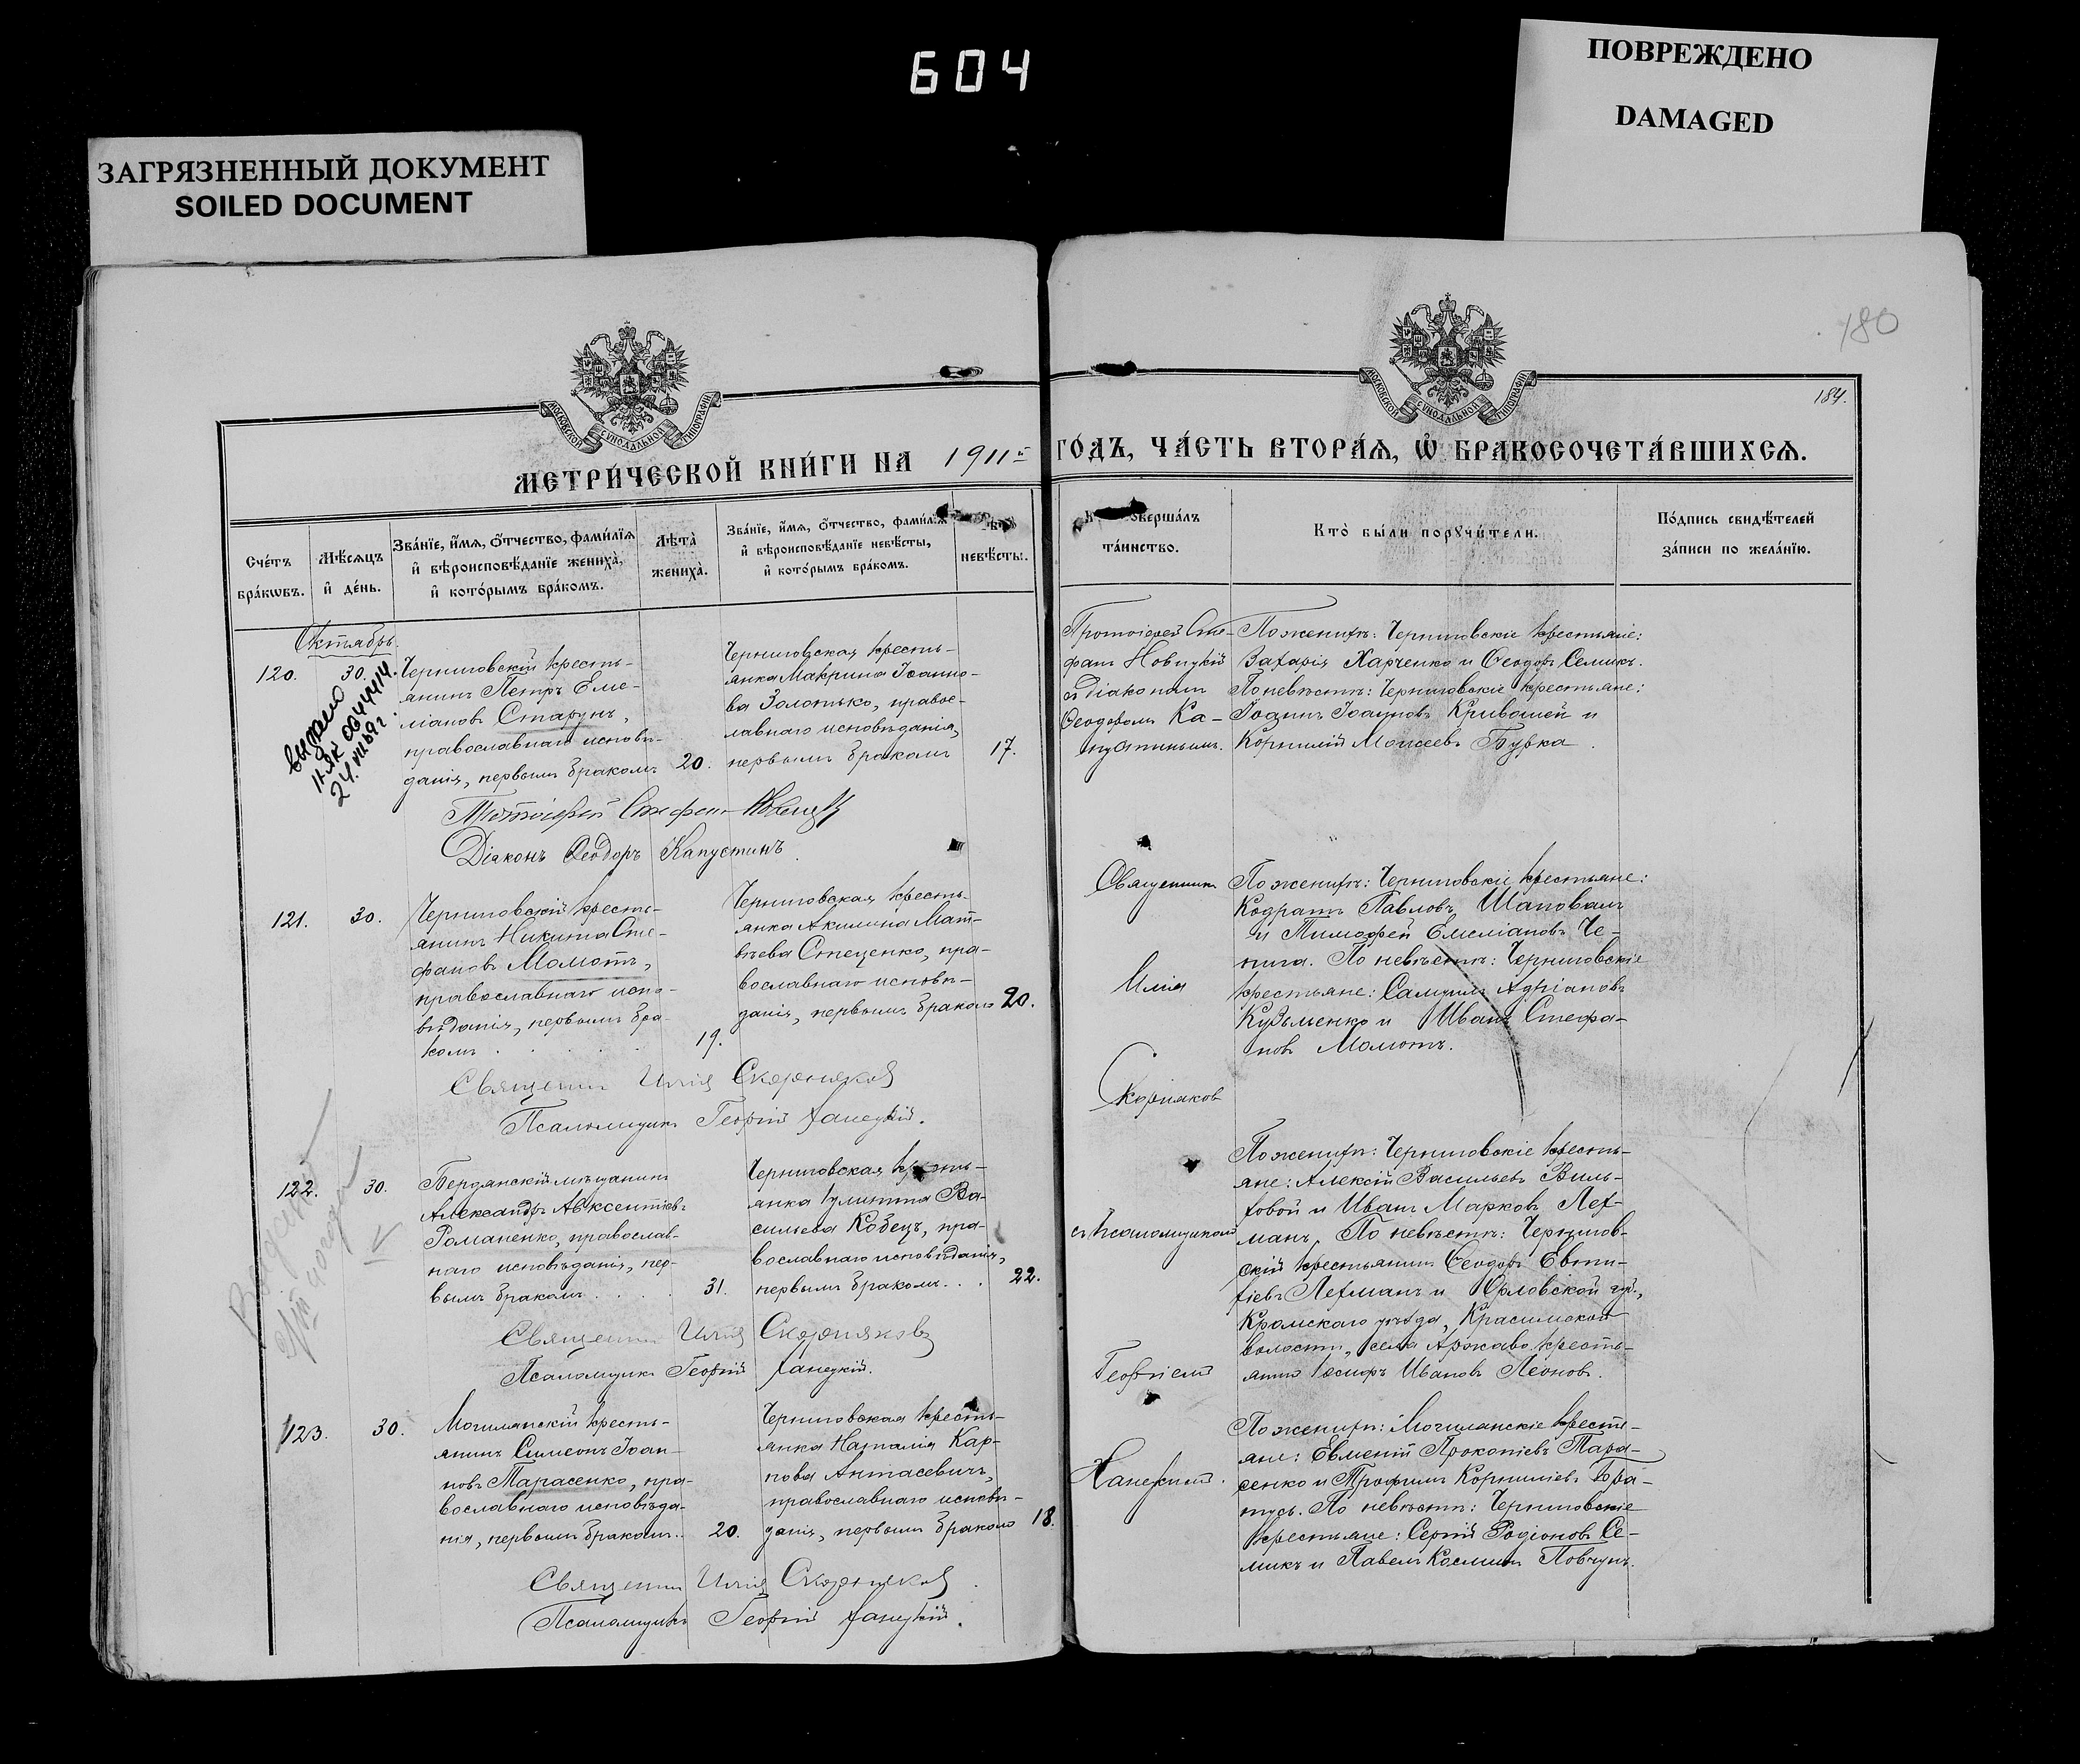 604
ПОВРЕЖДЕНО
DAMAGED
ЗАГРЯЗНЕННЫЙ ДОКУМЕНТ
SOILED DOCUMENT
180
184.
МОСКОВСКОЙ СѴНОДАЛЬНОЙ ТИПОГРАФІИ
МОСКОВСКОЙ СѴНОДАЛЬНОЙ ТИПОГРАФІИ
МЕТРИ́ЧЕСКОЙ КНИ́ГИ НА 1911й ГО́ДЪ, ЧА́СТЬ ВТОРА́Я, Ѡ҆ БРАКОСОЧЕТА́ВШИХСѦ.
Сче́тъ
бра́кѡвъ.
Мѣ́сяцъ
и҆ де́нь.
Зва́нїе, и҆́мѧ, ѻ҆́тчество, фами́лїѧ
и҆ вѣроисповѣ́данїе жениха̀,
и҆ кото́рымъ бра́комъ.
Лѣта̀
жениха̀.
Зва́нїе, и҆́мѧ, ѻ҆́тчество, фами́лїѧ
и҆ вѣроисповѣ́данїе невѣ́сты,
и҆ кото́рымъ бра́комъ.
невѣ́сты.
соверша́лъ
та́инство.
Кто̀ бы́ли порꙋчи́тели.
По́дпись свидѣ́телей
за́писи по жела́нїю.
Октябрь.
120.
30.
выдано
24.VII.69 г.
Черниговскій кресть-
янинъ Петръ Еме-
ліановъ Старунъ,
православнаго исповѣ-
данія, первымъ бракомъ
20.
Черниговская кресть-
янка Макрина Іоанно-
ва Золотько, правос-
лавнаго исповѣданія,
первымъ бракомъ
17.
Протоіерей Сте-
фанъ Новицкій
съ діакономъ
Ѳеодоромъ Ка-
пустинымъ.
По женихѣ: Черниговскіе крестьяне:
Захарія Харченко и Ѳеодоръ Семикъ.
По невѣстѣ: Черниговскіе крестьяне:
Іоаннъ Іоанновъ Кривошей и
Корнилій Моисеевъ Бурка.
Протоіерей Стефанъ Новицкій
Діаконъ Ѳеодоръ Капустинъ.
121.
30.
Черниговскій кресть-
янинъ Никита Сте-
фановъ Момотъ,
православнаго испо-
вѣданія, первымъ бра-
комъ
19.
Черниговская кресть-
янка Акилина Мат-
вѣева Стеценко, пра-
вославнаго исповѣ-
данія, первымъ бракомъ
20.
Священникъ
Илія
Скорняковъ
По женихѣ: Черниговскіе крестьяне:
Кодратъ Павловъ Шаповалъ
и Тимофей Емеліановъ Че-
пига. По невѣстѣ: Черниговскіе
крестьяне: Самуилъ Адріановъ
Кузьменко и Иванъ Стефа-
новъ Момотъ.
Священникъ Илія Скорняковъ
Псаломщикъ Георгій Ханецкій.
122.
30.
Бердянскій мѣщанинъ
Александръ Авксентіевъ
Романенко, православ-
наго исповѣданія, пер-
вымъ бракомъ
31.
Черниговская кресть-
янка Іулитта Ва-
сильева Кобецъ, пра-
вославнаго исповѣданія,
первымъ бракомъ
22.
съ псаломщикомъ
Георгіемъ
По женихѣ: Черниговскіе кресть-
яне: Алексій Васильевъ Виль-
ховой и Иванъ Марковъ Лех-
манъ. По невѣстѣ: Чернигов-
скій крестьянинъ Ѳеодоръ Евти-
хіевъ Лехманъ и Орловской губ.,
Кромскаго уѣзда,
волости, села кресть-
янинъ Іосифъ Ивановъ Леоновъ.
Священникъ Илія Скорняковъ
Псаломщикъ Георгій Ханецкій.
123.
30.
Могилянскій кресть-
янинъ Симеонъ Іоан-
новъ Тарасенко, пра-
вославнаго исповѣда-
нія, первымъ бракомъ
20.
Черниговская кресть-
янка Наталія Кар-
пова Антасевичъ,
православнаго исповѣ-
данія, первымъ бракомъ
18.
Ханецкимъ.
По женихѣ: Могилянскіе кресть-
яне: Евменій Прокопіевъ Тара-
сенко и Трофимъ Корниліевъ Бра-
тусь. По невѣстѣ: Черниговскіе
крестьяне: Сергій Родіоновъ Се-
микъ и Павелъ Космичъ Повчунъ.
Священникъ Илія Скорняковъ
Псаломщикъ Георгій Ханецкій.